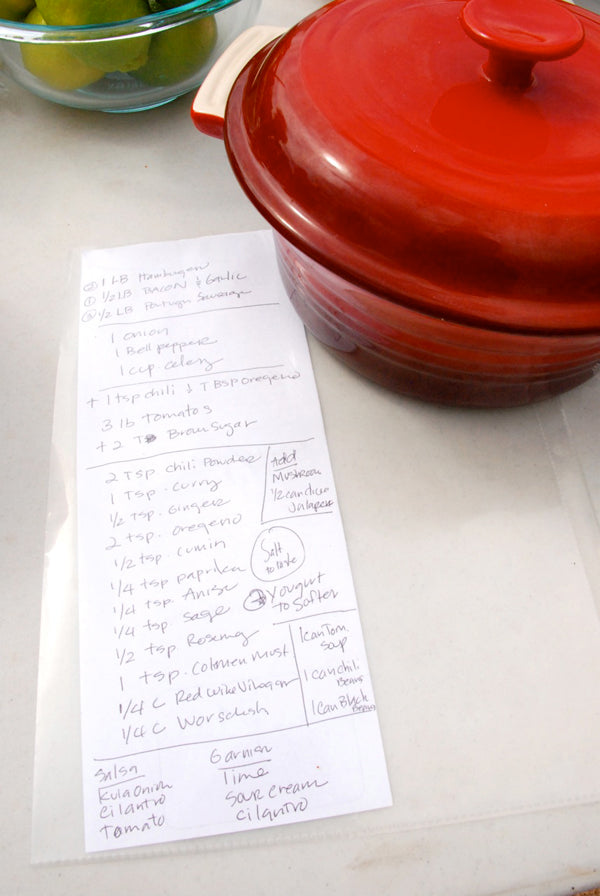 ② 1 LB Hamburger
① 1/2 LB BACON & Garlic
③ 1/2 LB Portugu Sausage
1 onion
1 Bell pepper
1 cup celery
+ 1 tsp chili & 1 TBSP oregeno
3 lb tomatos
+ 2 T Brown Sugar
2 Tsp chili Powder
1 Tsp. curry
1/2 Tsp. Ginger
2 tsp. oregeno
1/2 tsp. cumin
1/4 tsp paprika
1/4 tsp. Anise
1/4 tsp. sage
1/2 tsp. Rosemg
1 tsp. Colomen Must
1/4 C Red wine Vinegar
1/4 C Worsdish
Add
Mushroom
1/2 can dice
Jalapen
Salt
to taste
Yougurt
to Softer
1 can Tom
Soup
1 can chili
Beans
1 can Black
Beans
Salsa
Kula Onion
cilantro
tomato
Garnish
Lime
Sour Cream
cilantro